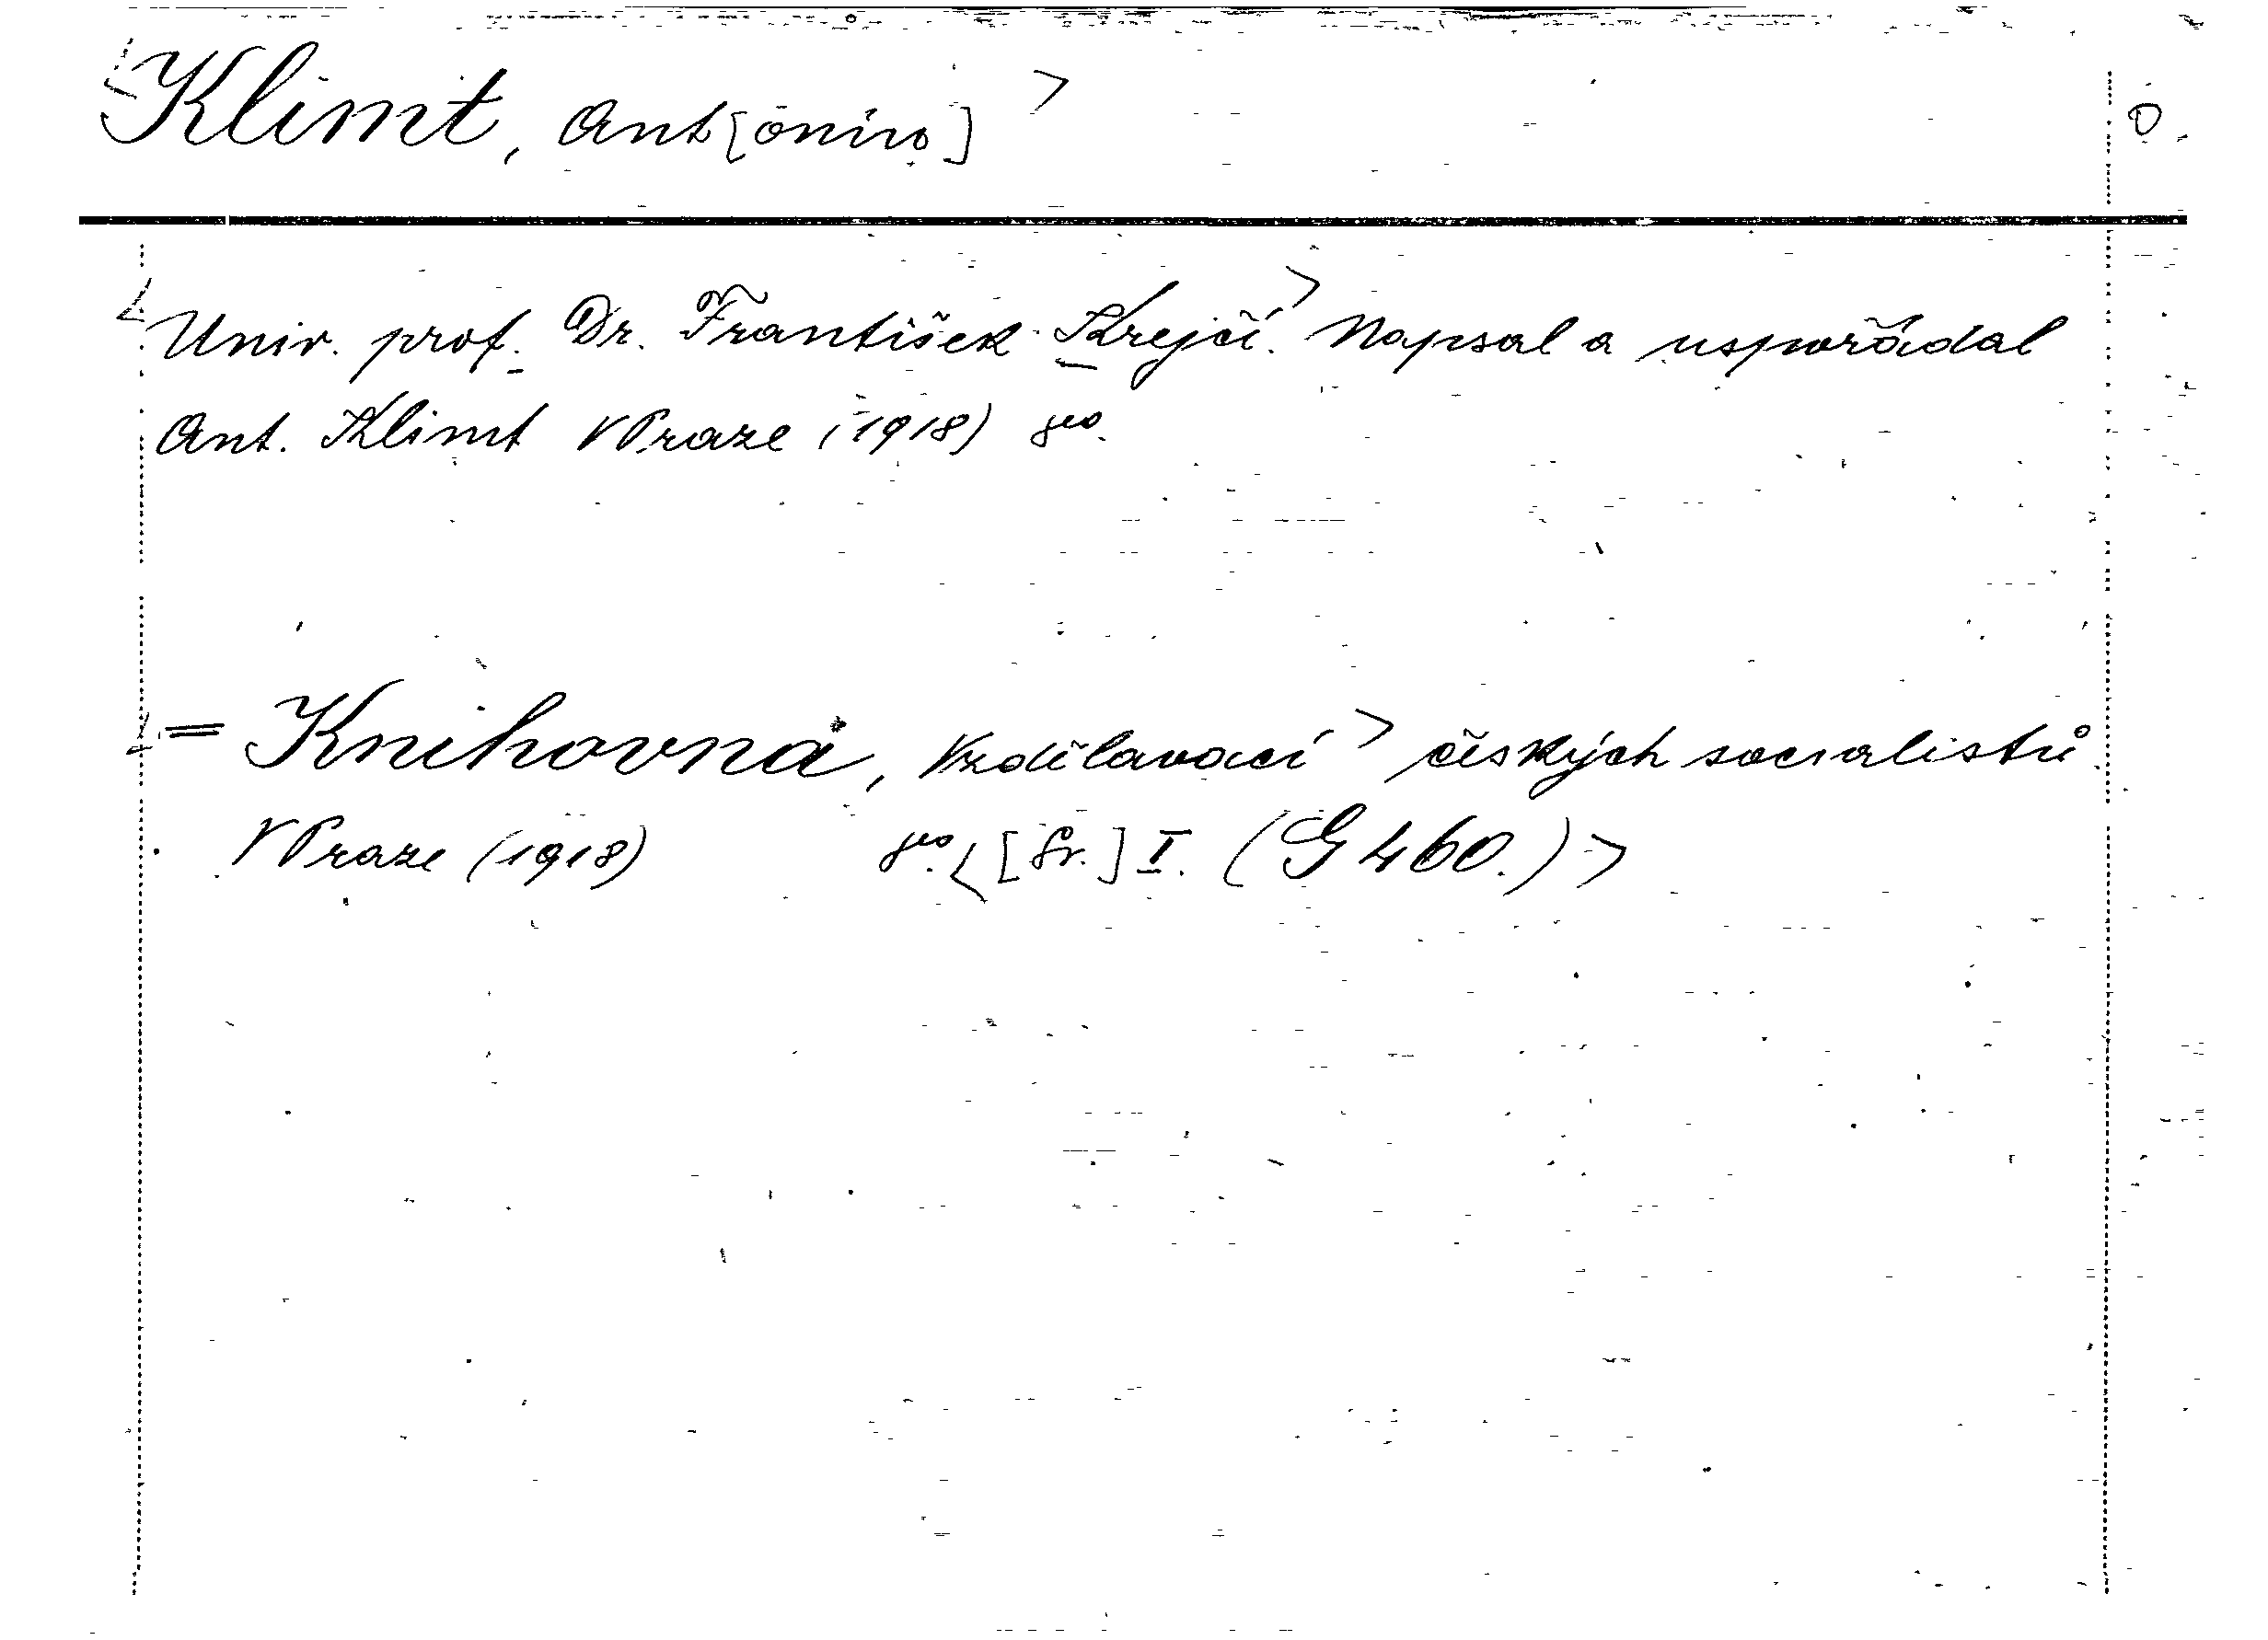 <Klimt, Ant[onín]> O.
<Univ. prof. Dr. František Krejčí.> Napsal a uspořádal
Ant. Klimt V Praze (1918) 8º.
<= Knihovna, Vzdělávací> českých socialistů.
V Praze (1918) 8º. <[Sv.] I. (G 460.)>